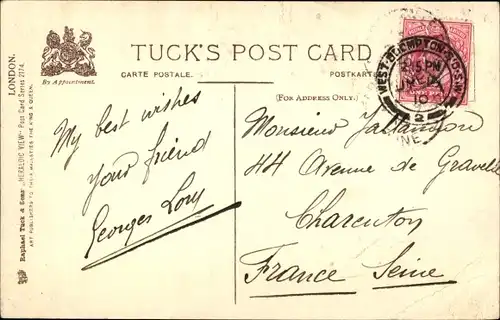 TUCK'S POST CARD
CARTE POSTALE.
POSTKARTE
By Appointment.
(FOR ADDRESS ONLY.)
LONDON.
Raphael Tuck & Sons' "HERALDIC VIEW" Post Card Series 2174.
ART PUBLISHERS TO THEIR MAJESTIES THE KING & QUEEN.
WEST-BROMPTON S.W.
15 PM
10
2
My best wishes
your friend
Georges Lory
Monsieur
44 Avenue de Gravelle
Charenton
France Seine